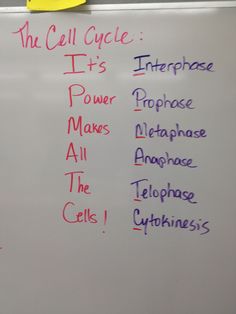 The Cell Cycle:
It's Interphase
Power Prophase
Makes Metaphase
All Anaphase
The Telophase
Cells! Cytokinesis